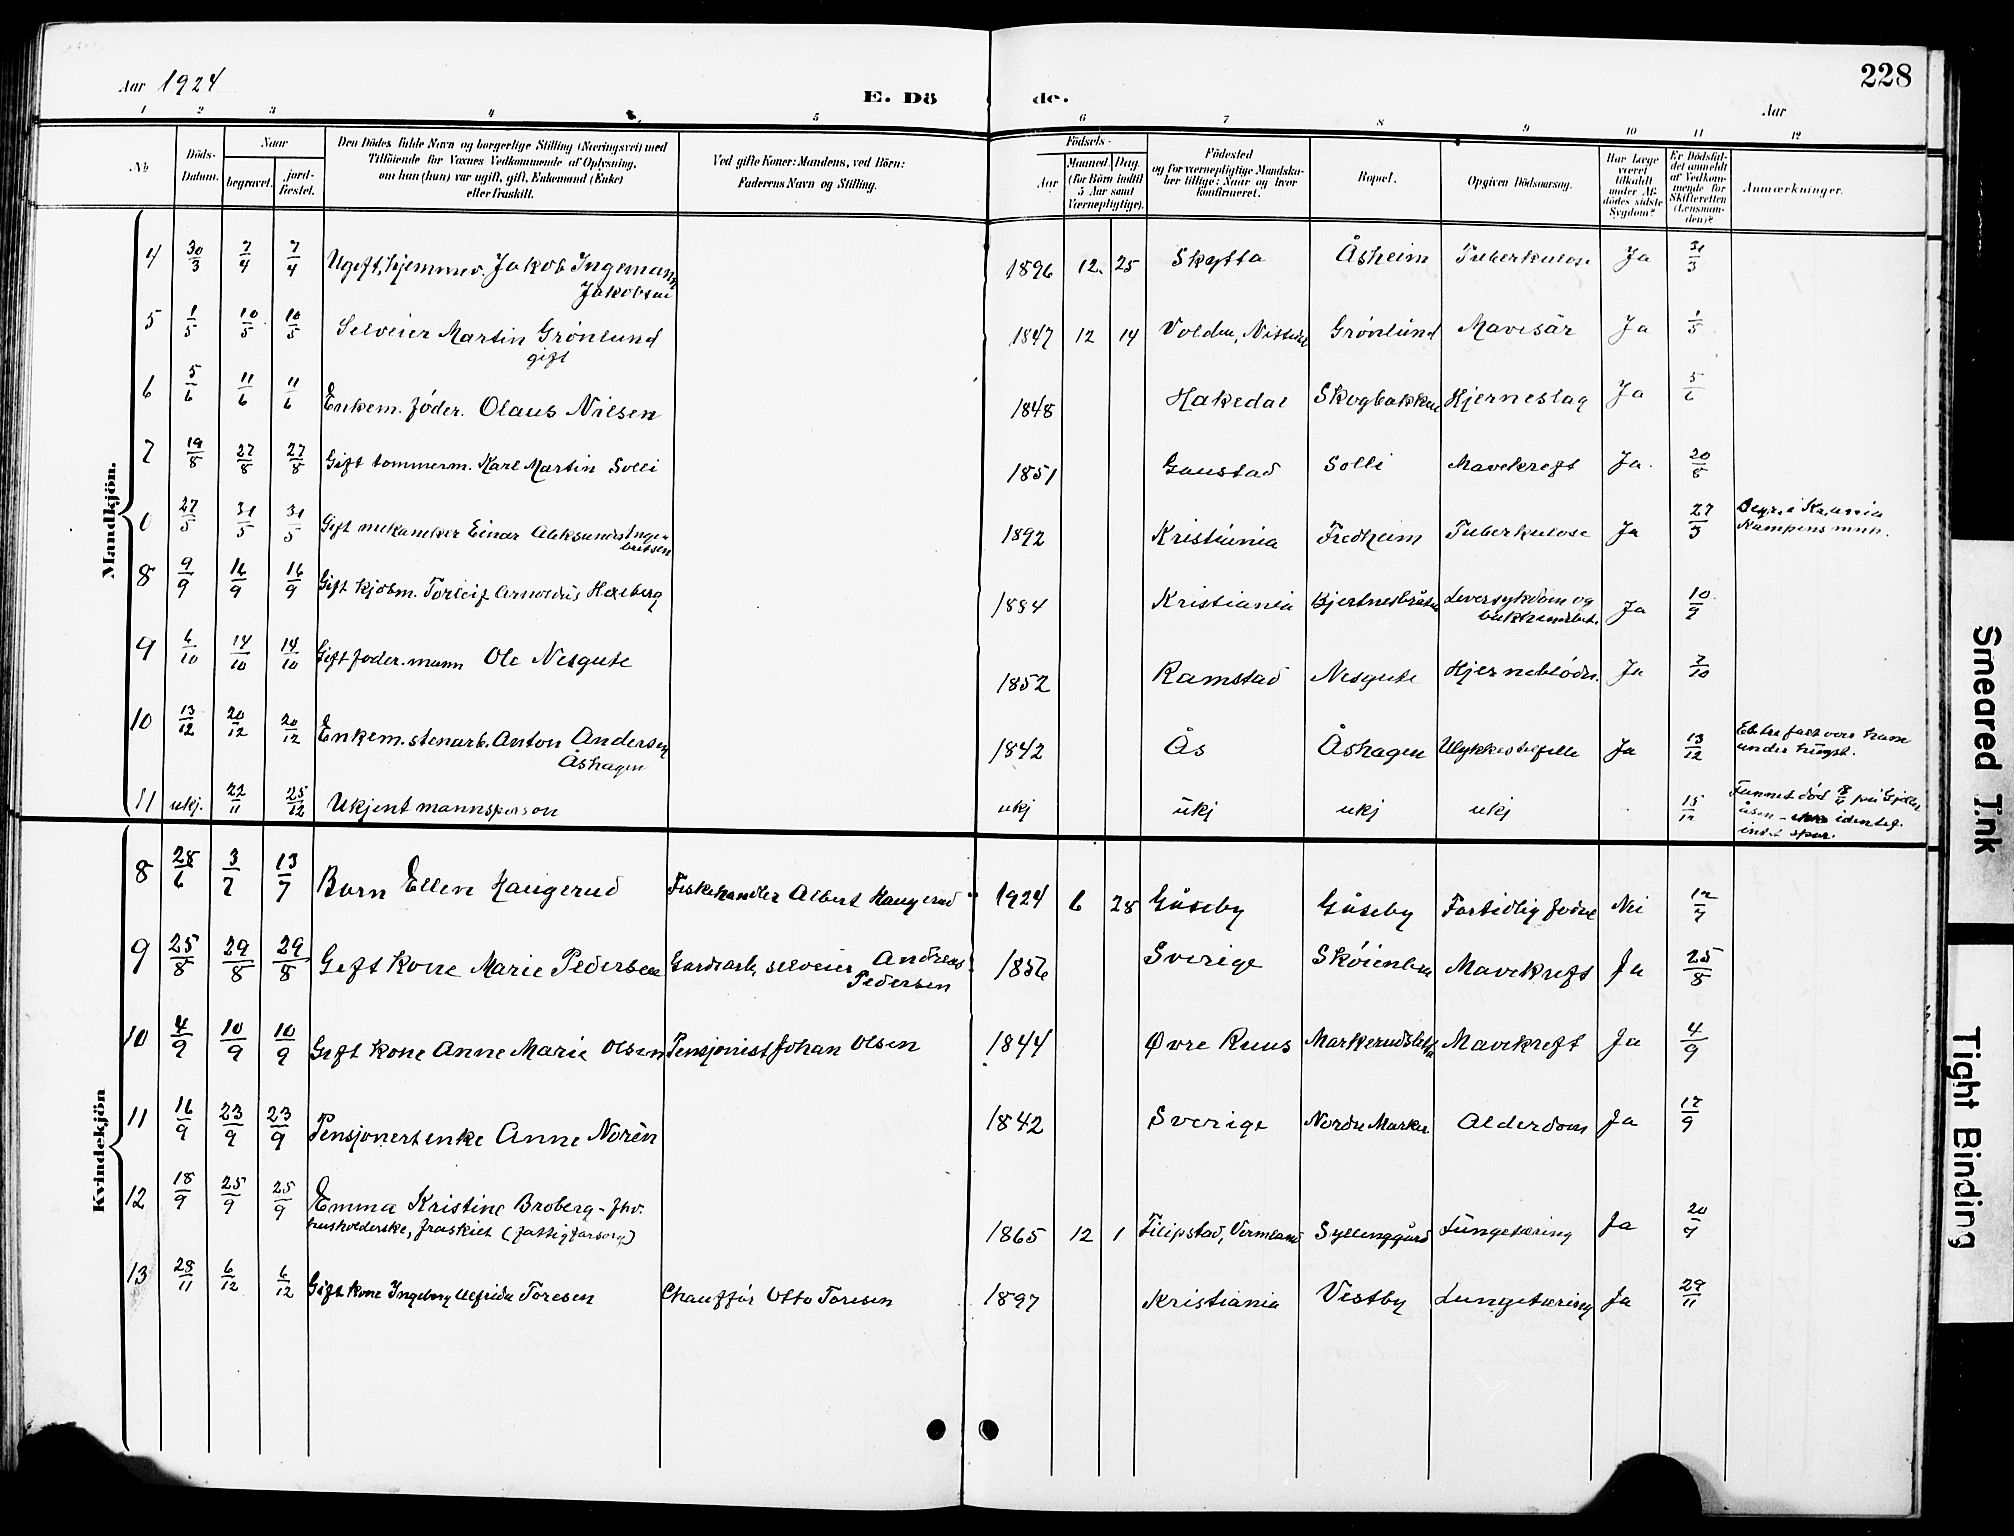 Aar 1924
E. Dö de.
Aar
228
1 2 3 4 5 6 7 8 9 10 11 12
No
Döds-Datum.
Naar
begravet.
jord-fæstet.
Den Dödes fulde Navn og borgerlige Stilling (Næringsvei) med
Tilföiende for Voxnes Vedkommende af Oplysning,
om han (hun) var ugift, gift, Enkemand (Enke)
eller fraskilt.
Ved gifte Koner: Mandens, ved Börn:
Faderens Navn og Stilling.
Födsels-
Aar
Maaned. Dag.
(for Börn indtil
5 Aar samt
Værnepligtige).
Födested
og for værnepligtige Mandska-
ber tillige: Naar og hvor
konfirmeret.
Bopæl.
Opgiven Dödsaarsag.
Har Læge
været
tilkaldt
under Af-
dödes sidste
Sygdom?
Er Dödsfal-
det anmeldt
af Vedkom-
mende for
Skifteretten
(Lensman-
den)?
Anmærkninger.
Mandkjön.
4 30/3 7/4 7/4 Ugift, hjemmev. Jakob Ingemann Jakobsen 1896 12. 25 Skytta Åsheim Tuberkulose Ja 31/3
5 1/5 10/5 10/5 Selveier Martin Grönlund gift 1847 12 14 Volden, Nittedal Grönlund Mavesår Ja 1/5
6 5/6 11/6 11/6 Enkem. föder. Olaus Nilsen 1848 Hakedal Skogbakken Hjerneslag Ja 5/6
7 19/8 27/8 27/8 Gift tømmerm. Karl Martin Solli 1851 Gaustad Solli Mavekreft Ja. 20/8
0 27/5 31/5 31/5 Gift mekaniker Einar Aleksander Ingebretsen 1892 Kristiania Fredheim Tuberkulose Ja 27/5 Begr. i Kr.ania Kampens men.
8 9/9 16/9 16/9 Gift kjöbm. Torleif Arnoldus Hexeberg 1884 Kristiania Kjertnesbråten Leversykdom og Ja 10/9
9 6/10 14/10 14/10 Gift föder.mann Ole Nesgute 1852 Ramstad Nesgute Hjerneblödn. Ja 7/10
10 13/12 20/12 20/12 Enkem. stenarb. Anton Andersen Åshagen 1842 Ås Åshagen Ulykkestilfelle Ja 13/12
11 ukj. 22/11 25/12 Ukjent mannsperson ukj ukj ukj ukj 15/12 Funnet död
Kvindekjön
8 28/6 3/7 13/7 Barn Ellen Haugerud Fiskehandler Albert Haugerud 1924 6 28 Gåseby Gåseby Fortidlig födsel Nei 12/7
9 25/8 29/8 29/8 Gift kone Marie Pedersen Gardsarb., selveier Andreas Pedersen 1856 Sverige Sköienben Mavekreft Ja 25/8
10 4/9 10/9 10/9 Gift kone Anne Marie Olsen Pensjonist Johan Olsen 1844 Øvre Ruus Markerudsletta Mavekreft Ja 4/9
11 16/9 23/9 23/9 Pensjonert enke Anne Norèn 1842 Sverige Nordre Marker Alderdom Ja 17/9
12 18/9 25/9 25/9 Emma Kristine Broberg - fhv.
husholderske, fraskilt (fattigforsorg) 1865 12 1 Filipstad, Vermland Syllinggård Lungetæring Ja 20/9
13 28/11 6/12 6/12 Gift kone Ingeborg Alfrida Toresen Chaufför Otto Toresen 1897 Kristiania Vestby Lungetæring Ja 29/11
Smeared Ink
Tight Binding